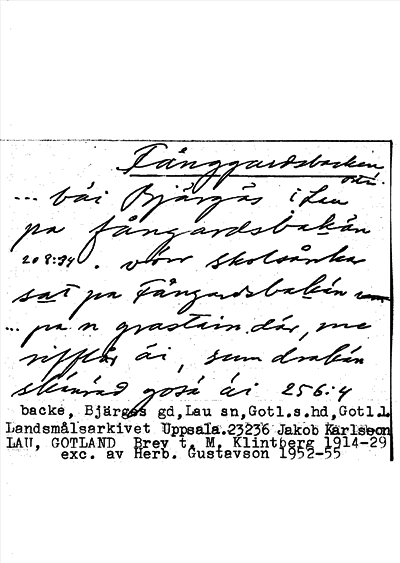 Fånggardsbacken
... bäi Bjärgäs i Lau
pa fångardsbakän
208:34 . vörr skolsånka
sat pa Fångardsbakän
... pa n grastain där, me
riffler äi, sum drakän
skinräd gosä äi 256:4
backe, Bjärges gd,Lau sn,Gotl.s.hd,Gotl.l.
Landsmålsarkivet Uppsala.23236 Jakob Karlsson
LAU, GOTLAND Brev t. M. Klintberg 1914-29
exc. av Herb. Gustavson 1952-55